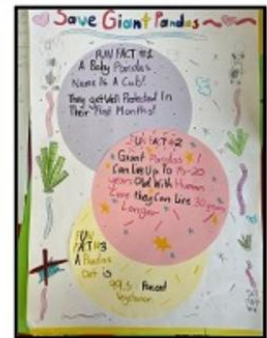 Save Giant Pandas
FUN FACT #1
A Baby Pandas
Name Is A Cub!
They get Well Protected In
Their First Months!
FUN FACT #2
Giant Pandas
Can Live Up To 15-20
years Old With Human
Care they Can Live 30 years
Longer
FUN
FACT #3
A Pandas
Diet is
99.5 Percent
Vegetarian